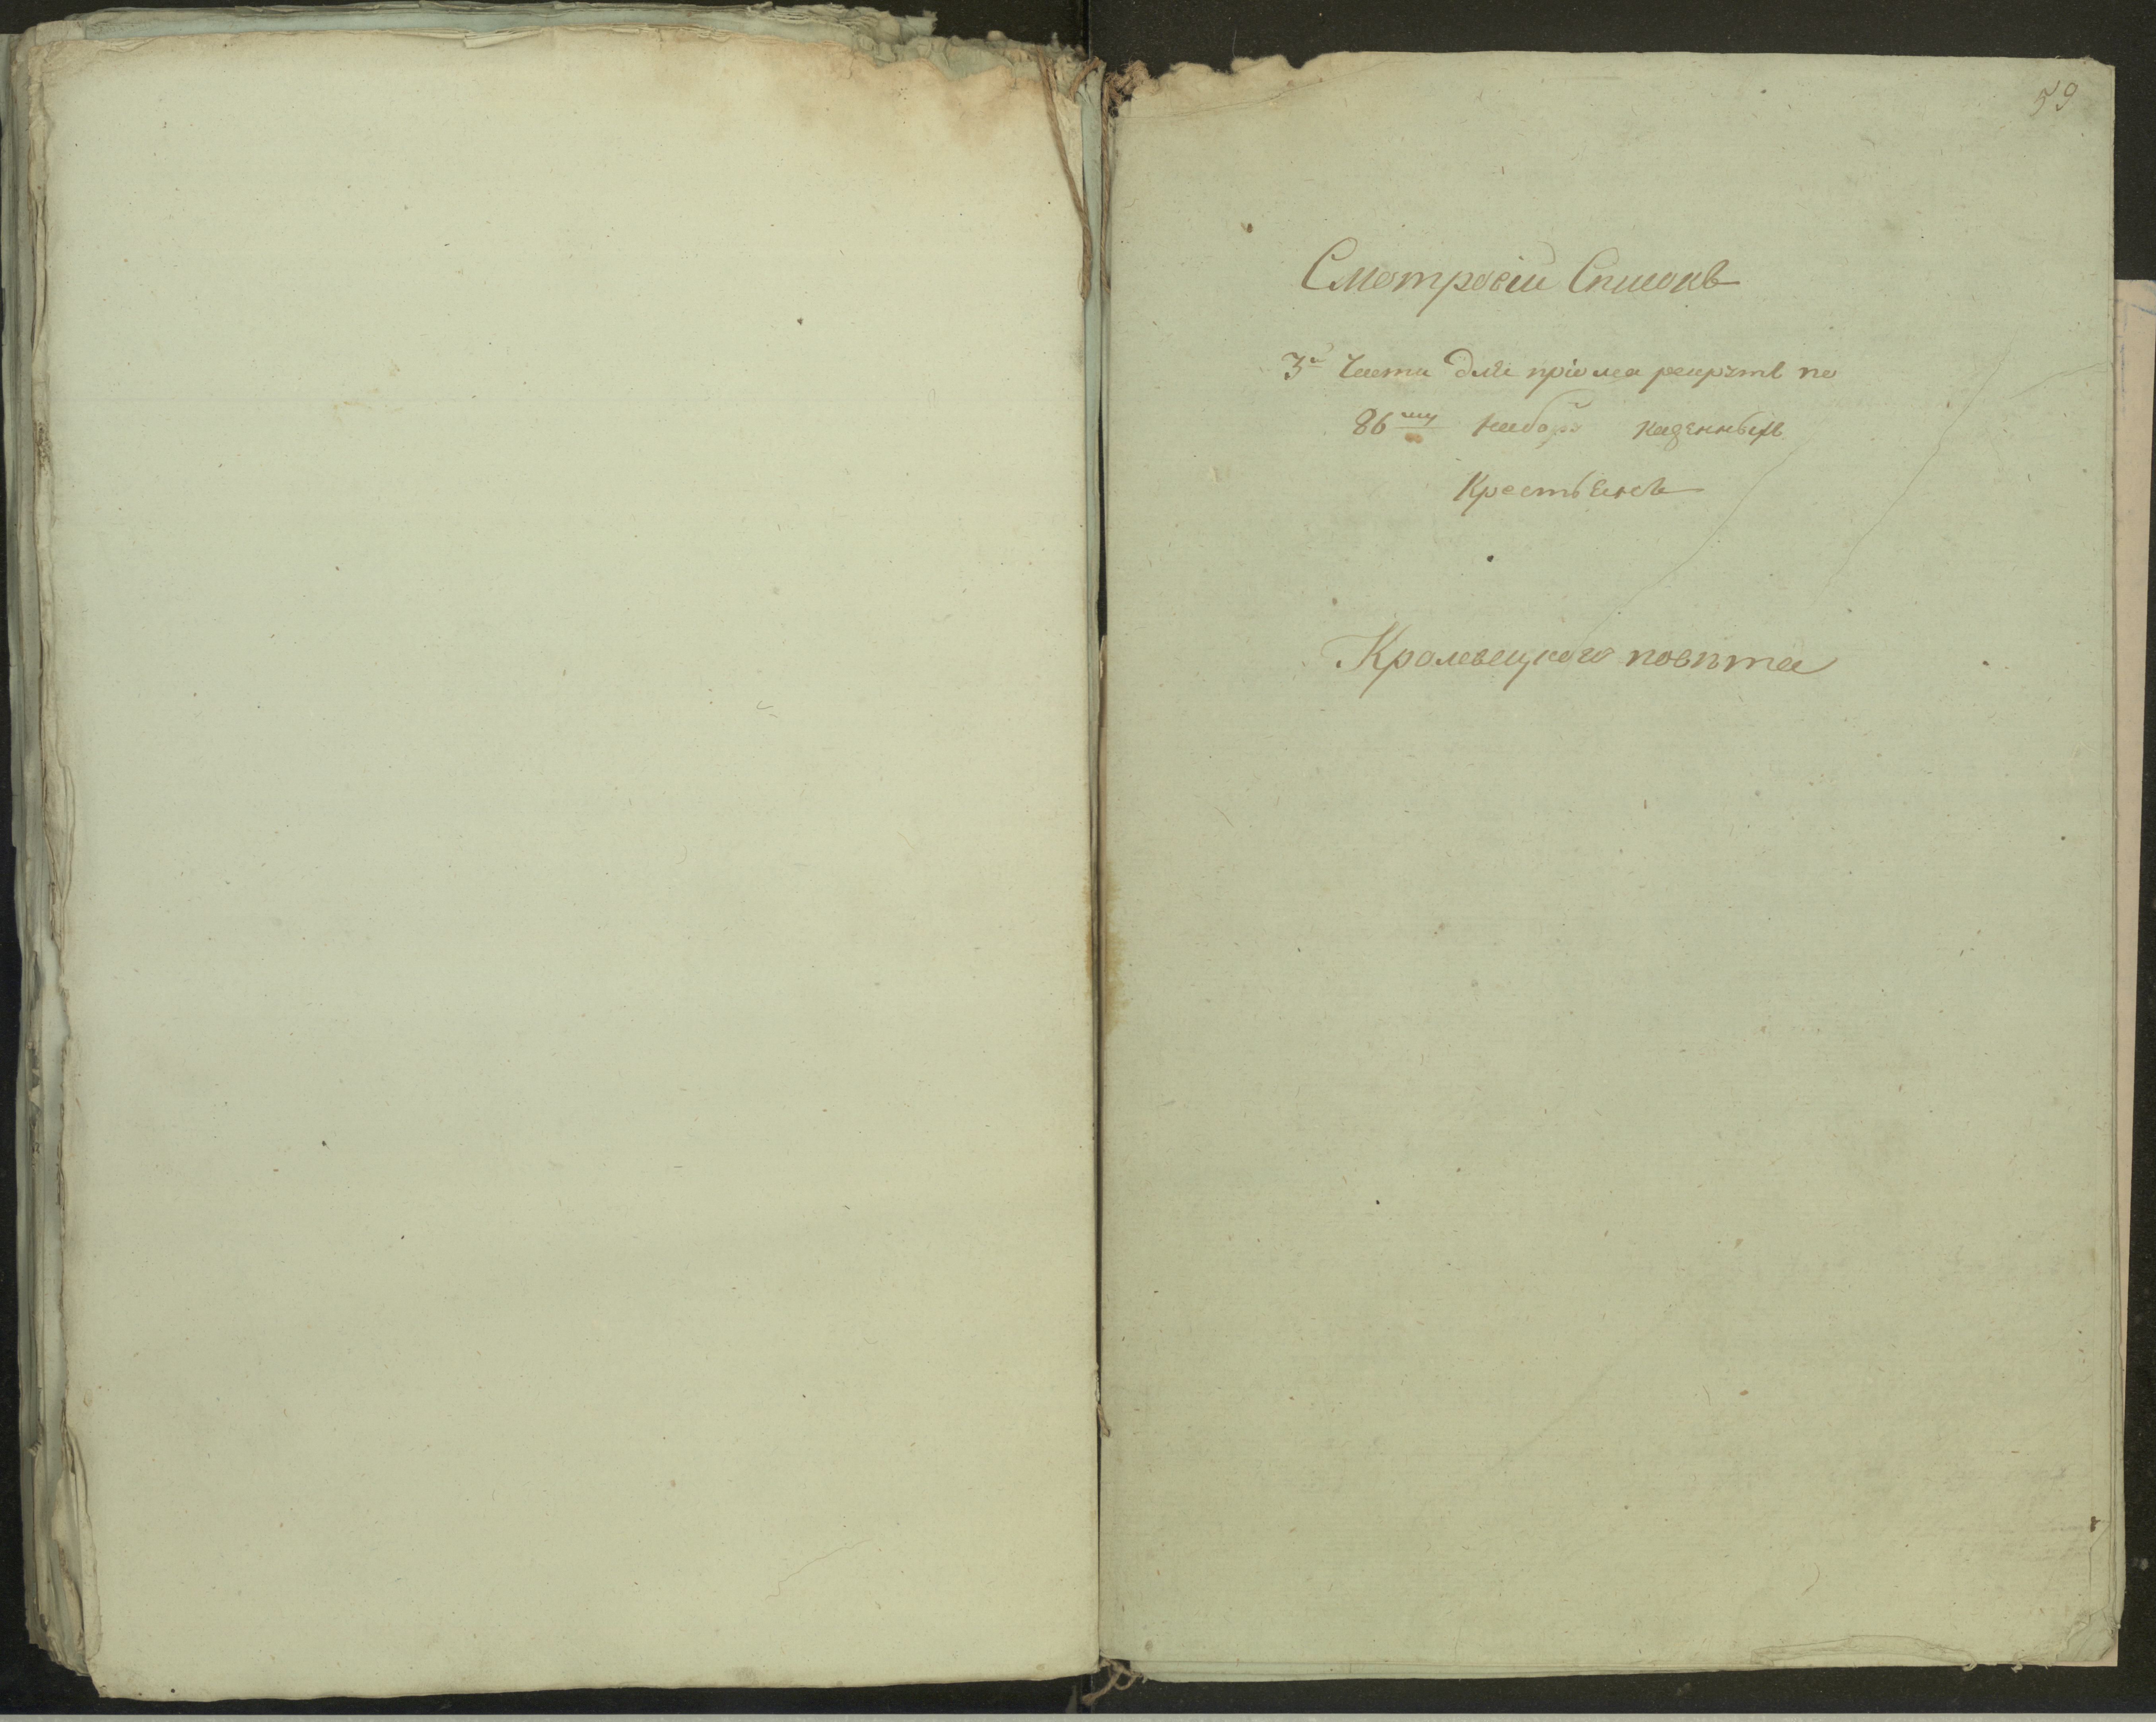 59
Смотровій Списокъ
3й Части для пріома рекрутъ по
86му набору казенныхъ
Крестьянъ
Кролевецкого повѣта